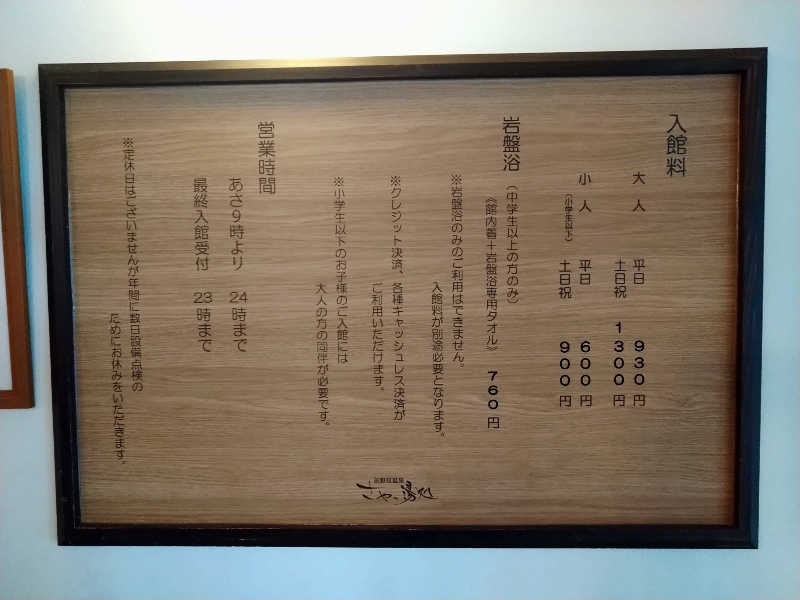 入館料
大人 平日 930円
土日祝 1300円
小人 平日 600円
(小学生以下) 土日祝 900円
岩盤浴 (中学生以上の方のみ)
《館内着+岩盤浴専用タオル》 760円
※岩盤浴のみのご利用はできません。
入館料が別途必要となります。
※クレジット決済、各種キャッシュレス決済が
ご利用いただけます。
※小学生以下のお子様のご入館には
大人の方の同伴が必要です。
営業時間
あさ9時より 24時まで
最終入館受付 23時まで
※定休日はございませんが年間に数日設備点検の
ためにお休みをいただきます。
前野原温泉
さやの湯処